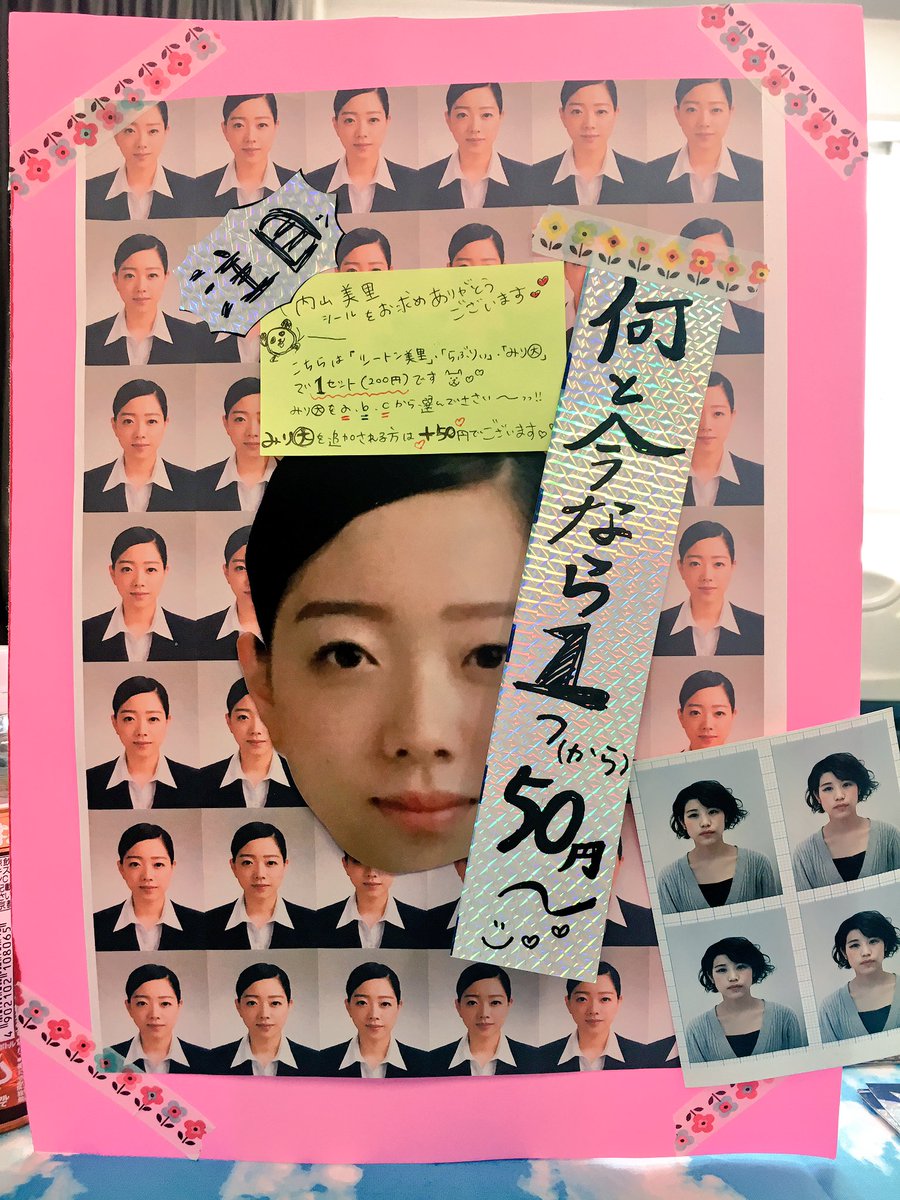 注目ッ
内山美里
シールをお求めありがとう
ございます
こちらは「ルートン美里」、「らぶりぃ」・「みり大」
で1セット(200円)です
みり大をa.b.cから選んで下さい〜ッッ!!
みり大を追加される方は+50円でございます
何と今なら1つ(から)50円〜
4902102108065